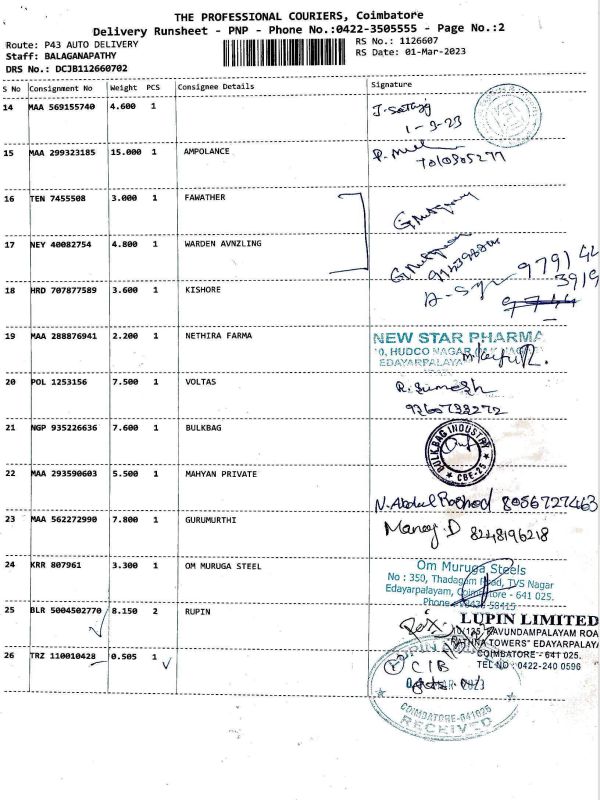 THE PROFESSIONAL COURIERS, Coimbatore
Delivery Runsheet - PNP - Phone No.:0422-3505555 - Page No.:2
Route: P43 AUTO DELIVERY
RS No.: 1126607
Staff: BALAGANAPATHY
RS Date: 01-Mar-2023
DRS No.: DCJB112660702
S No Consignment No Weight PCS Consignee Details Signature
14 MAA 569155740 4.600 1
1-3-23
15 MAA 299323185 15.000 1 AMPOLANCE
7010305277
16 TEN 7455508 3.000 1 FAWATHER
17 NEY 40082754 4.800 1 WARDEN AVNZLING
97914
3919
18 HRD 707877589 3.600 1 KISHORE
19 MAA 288876941 2.200 1 NETHIRA FARMA
NEW STAR PHARMA
HUDCO NAGAR
EDAYARPALAYA
20 POL 1253156 7.500 1 VOLTAS
R. Sumesh
9360738272
21 NGP 935226636 7.600 1 BULKBAG
BULK BAG INDUSTRY
* CBE-25 *
22 MAA 293590603 5.500 1 MAHYAN PRIVATE
N. Abdul Rashed 8056727463
23 MAA 562272990 7.800 1 GURUMURTHI
Manoj.D 8248196218
24 KRR 807961 3.300 1 OM MURUGA STEEL
Om Muruga Steels
No : 350, Thadagam Road, TVS Nagar
Edayarpalayam, Coimbatore - 641 025.
Phone
58415
25 BLR 5004502770 8.150 2 RUPIN
LUPIN LIMITED
PAVUNDAMPALAYAM ROA
TOWERS" EDAYARPALAYA
COIMBATORE - 641 025.
TEL NO : 0422-240 0596
26 TRZ 110010428 0.505 1
CIB
2023
COIMBATORE-641025
RECEIVED